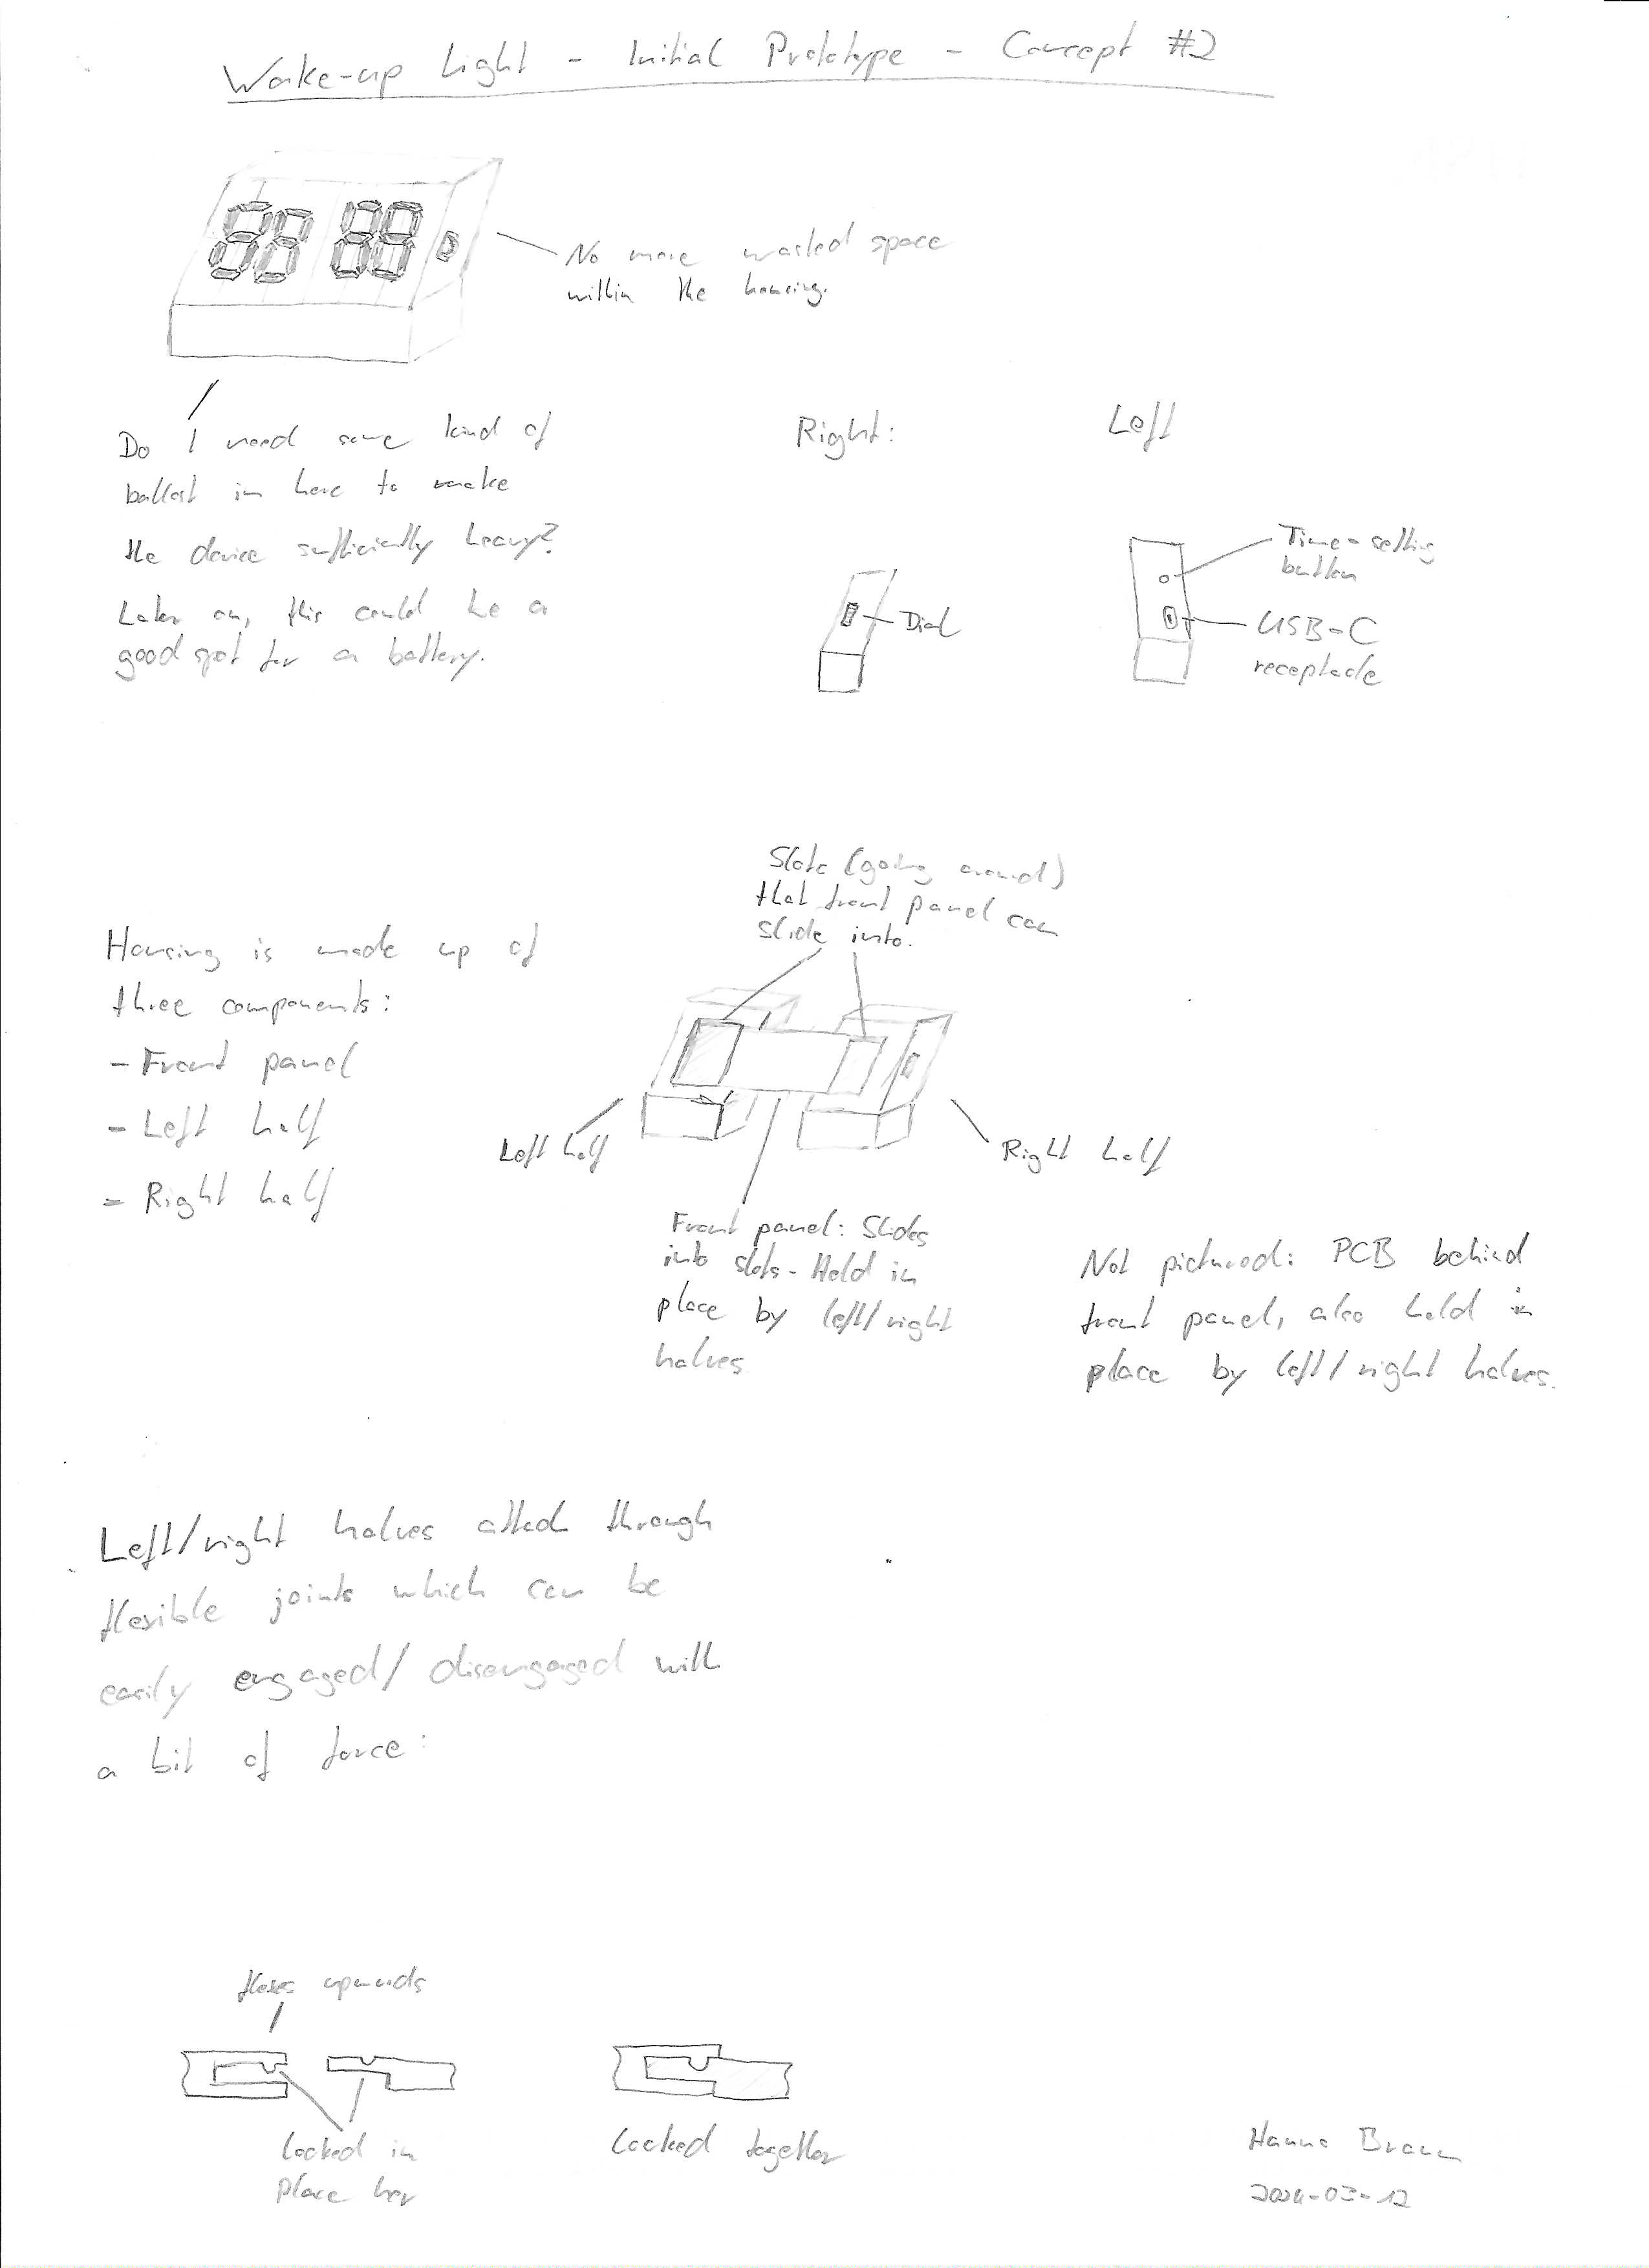 Wake-up Light - Initial Prototype - Concept #2
No more wasted space
within the housing.
Do I need some kind of
ballast in here to make
the device sufficiently heavy?
Later on, this could be a
good spot for a battery.
Right:
Dial
Left
Time-setting
button
USB-C
receptacle
Housing is made up of
three components:
- Front panel
- Left half
- Right half
Slots (going around)
that front panel can
slide into.
Left half
Right half
Front panel: Slides
into slots - Held in
place by left/right
halves
Not pictured: PCB behind
front panel, also held in
place by left/right halves.
Left/right halves attach through
flexible joints which can be
easily engaged/disengaged with
a bit of force:
flexes upwards
Locked in
place here
Locked together
Hanna Braun
2024-03-12